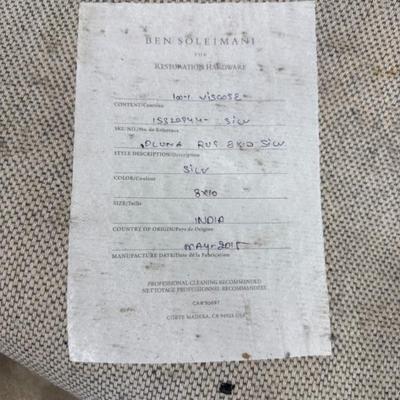 BEN SOLEIMANI
FOR
RESTORATION HARDWARE
100% VISCOSE
CONTENT/Contenu
SILV
SKU NO./No. de Référence
RUG 8X10 SILV
STYLE DESCRIPTION/Description
SILV
COLOR/Couleur
8x10
SIZE/Taille
INDIA
COUNTRY OF ORIGIN/Pays de Origine
MAY-2015
MANUFACTURE DATE/Date de la Fabrication
PROFESSIONAL CLEANING RECOMMENDED
NETTOYAGE PROFESSIONNEL RECOMMANDÉE
CORTE MADERA, CA 94925 USA